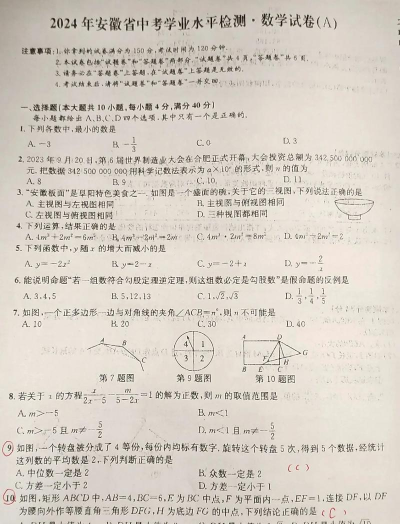 2024 年安徽省中考学业水平检测·数学试卷(A)
注意事项:1. 你拿到的试卷满分为 150 分,考试时间为 120 分钟.
2. 本试卷包括“试题卷”和“答题卷”两部分.“试题卷”共 4 页,“答题卷”共 6 页.
3. 请务必在“答题卷”上答题,在“试题卷”上答题是无效的.
4. 考试结束后,请将“试题卷”和“答题卷”一并交回.
一、选择题(本大题共 10 小题,每小题 4 分,满分 40 分)
每小题都给出 A、B、C、D 四个选项,其中只有一个是正确的.
1. 下列各数中,最小的数是
A. −3 B. −1/3 C. 0 D. 3
2. 2023 年 9 月 20 日,第 6 届世界制造业大会在合肥正式开幕,大会投资总额为 342 500 000 000
元. 把数据 342 500 000 000 用科学记数法表示为 a×10ⁿ 的形式,则 n 的值为
A. 8 B. 9 C. 10 D. 11
3. “安徽板面”是阜阳特色美食之一. 如图是一个盛面的碗,关于它的三视图,下列说法正确的是
A. 主视图与左视图相同 B. 主视图与俯视图相同
C. 左视图与俯视图相同 D. 三种视图都相同
4. 下列运算,结果正确的是
5. 下列函数中,y 随 x 的增大而减小的是
A. y=−2x² B. y=2−x C. y=−2+x D. y=−2/x
6. 能说明命题“若一组数符合勾股定理逆定理,则这组数必定是勾股数”是假命题的反例是
A. 3,4,5 B. 5,12,13 C. 1,√2,√3 D. 1/3,1/4,1/5
7. 如图,一个正多边形一边与对角线的夹角∠ACB=n°,则 n 不可能是
A. 10 B. 20 C. 30 D. 40
A B C
4 1 3 2
A D F H G B E C
第 7 题图 第 9 题图 第 10 题图
8. 若关于 x 的方程 x/(2x−5) − m/(5−2x) =1 的解为正数,则 m 的取值范围是
A. m>−5 B. m<1
C. m>−5 且 m≠−5/2 D. m<1 且 m≠−5/2
9. 如图,一个转盘被分成了 4 等份,每份内均标有数字. 旋转这个转盘 5 次,得到 5 个数据,经统计
这列数的平均数是 2,下列判断正确的是
(C)
A. 中位数一定是 2 B. 众数一定是 2
C. 方差一定小于 2 D. 方差一定小于 1
10. 如图,矩形 ABCD 中,AB=4,BC=6,E 为 BC 中点,F 为平面内一点,EF=1,连接 DF,以 DF
为腰向外作等腰直角三角形 DFG,H 为底边 FG 的中点,下列结论正确的是 (C)